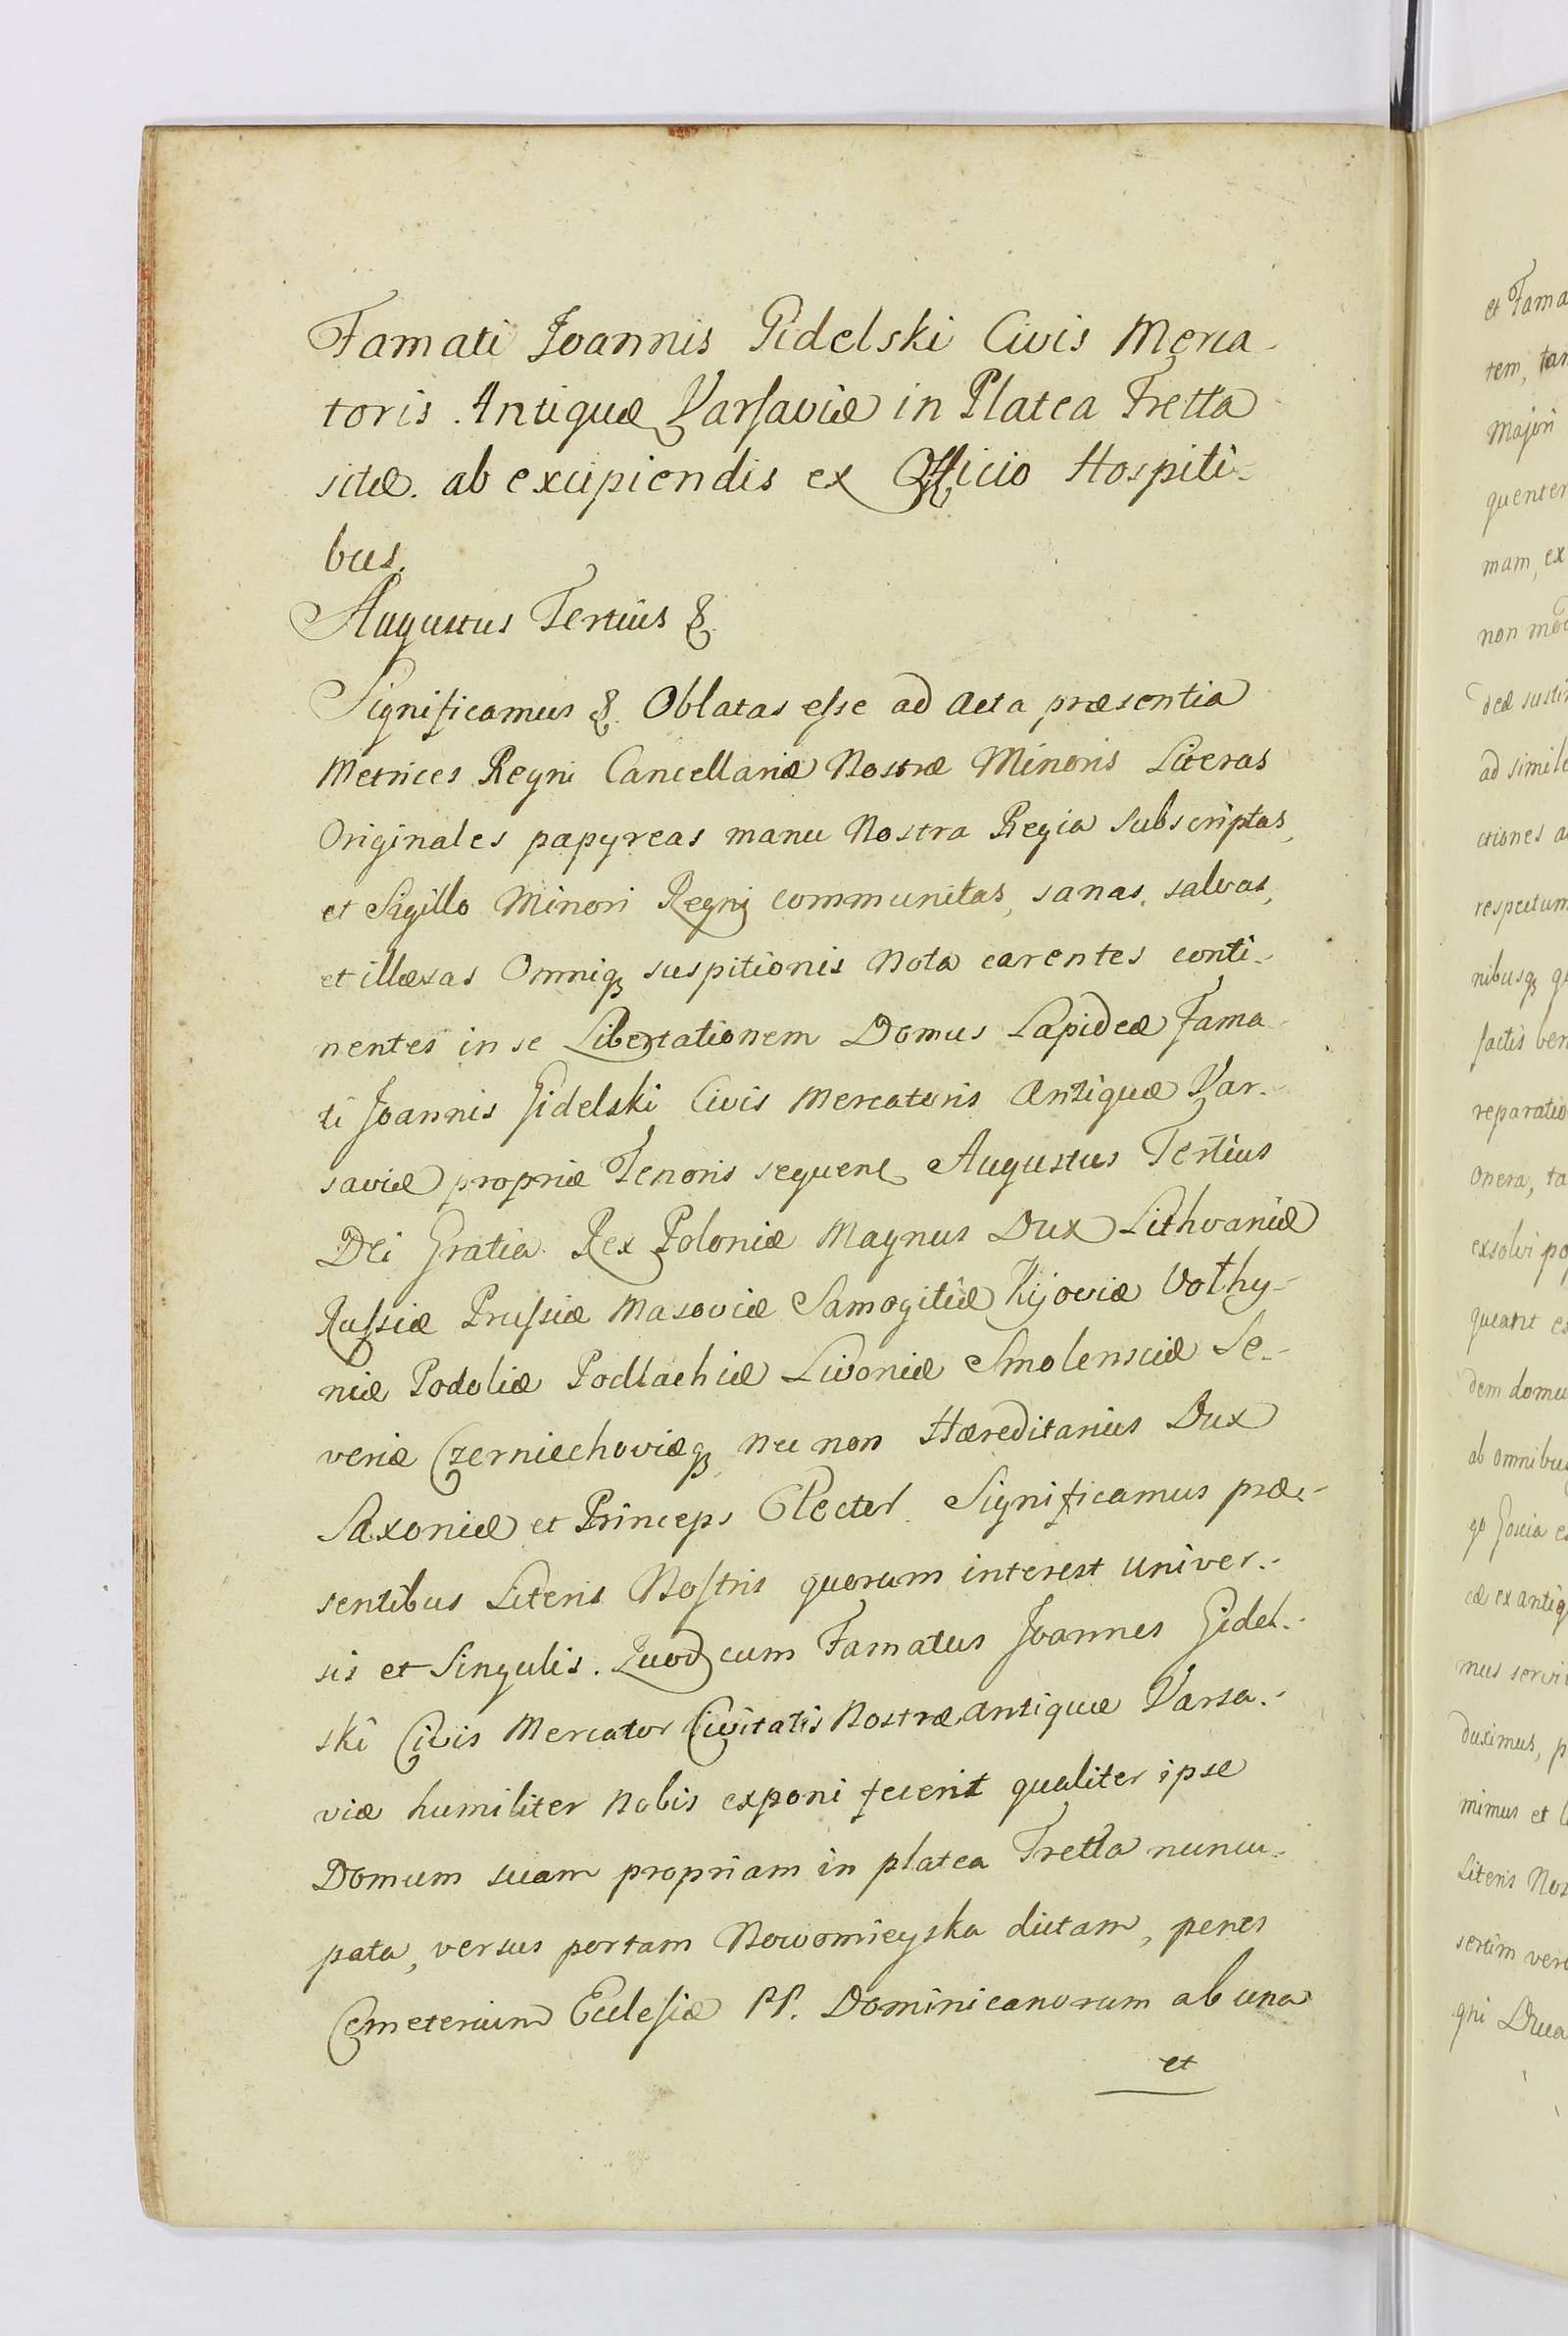 Famati Joannis Gidelski Civis Merca-
toris Antiquæ Varsaviæ in Platea Fretta
sitæ. ab excipiendis ex Officio Hospiti-
bus.
Augustus Tertius &
Significamus &. Oblatas esse ad Acta præsentia
Metrices Regni Cancellariæ Nostræ Minoris Literas
Originales papyreas manu Nostra Regia subscriptas,
et Sigillo Minori Regni communitas, sanas, salvas,
et illæsas Omniq suspitionis Nota carentes conti-
nentes in se Libertationem Domus Lapideæ Fama-
ti Joannis Gidelski Civis Mercatoris Antiquæ Var-
saviæ propriæ Tenoris sequen Augustus Tertius
Dei Gratia Rex Poloniæ Magnus Dux Lithvaniæ
Russiæ Prussiæ Masoviæ Samogitiæ Kijoviæ Volhy-
niæ Podoliæ Podlachiæ Livoniæ Smolensciæ Se-
veriæ Czerniechoviæq nec non Hæreditarius Dux
Saxoniæ et Princeps Elector. Significamus præ-
sentibus Literis Nostris quorum interest univer-
sis et Singulis. Quod cum Famatus Joannes Gidel-
ski Civis Mercator Civitatis Nostræ Antiquæ Varsa-
viæ humiliter Nobis exponi fecerit qualiter ipse
Domum suam propriam in platea Fretta nuncu-
pata, versus portam Nowomieyska dictam, penes
Cæmeterium Ecclesiæ PP. Dominicanorum ab una
et
et Fama
tem, tam
Majori
quenter
mam, ex
ad simile
ctiones a
respectum
nibusq
factis ben
reparatio
Onera, ta
exsolvi po
queant es
dem domu
ab omnibus
duximus, p
mimus et
Literis Nos